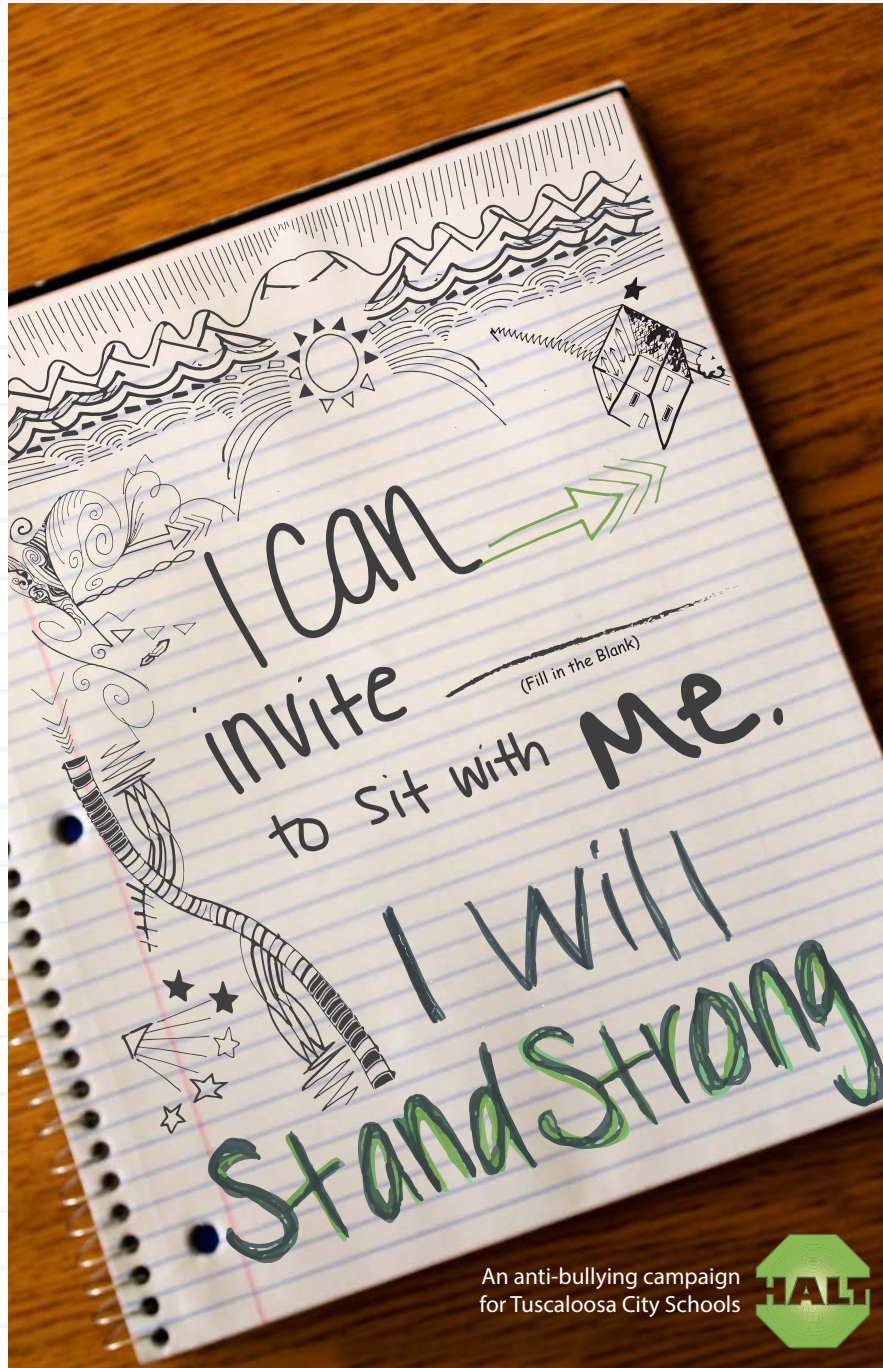 I can
invite
(Fill in the Blank)
to sit with Me.
I Will
Stand Strong
An anti-bullying campaign
for Tuscaloosa City Schools
HALT